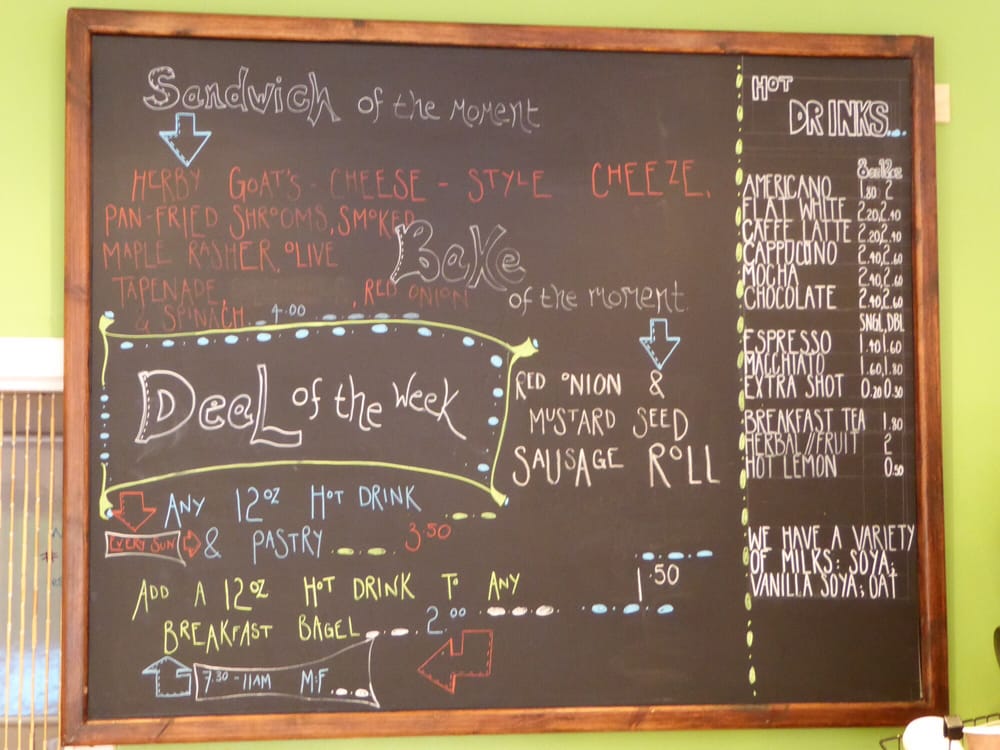 Sandwich of the moment
HERBY GOAT'S - CHEESE - STYLE CHEEZE,
PAN-FRIED SHROOMS, SMOKED
MAPLE RASHER, OLIVE
TAPENADE, , RED ONION
& SPINACH 4.00
Bake
of the moment
RED ONION &
MUSTARD SEED
SAUSAGE ROLL
1.50
Deal of the week
ANY 12OZ HOT DRINK
EVERY SUN & PASTRY 3.50
ADD A 12OZ HOT DRINK TO ANY
BREAKFAST BAGEL 2.00
7.30 - 11AM M:F
HOT
DRINKS...
8oz 12oz
AMERICANO 1.80 2
FLAT WHITE 2.20, 2.40
CAFFE LATTE 2.20, 2.40
CAPPUCINO 2.40, 2.60
MOCHA 2.40, 2.60
CHOCOLATE 2.40, 2.60
SNGL, DBL
ESPRESSO 1.40 1.60
MACCHIATO 1.60, 1.80
EXTRA SHOT 0.20 0.30
BREAKFAST TEA 1.80
HERBAL//FRUIT 2
HOT LEMON 0.50
WE HAVE A VARIETY
OF MILKS: SOYA;
VANILLA SOYA; OAT